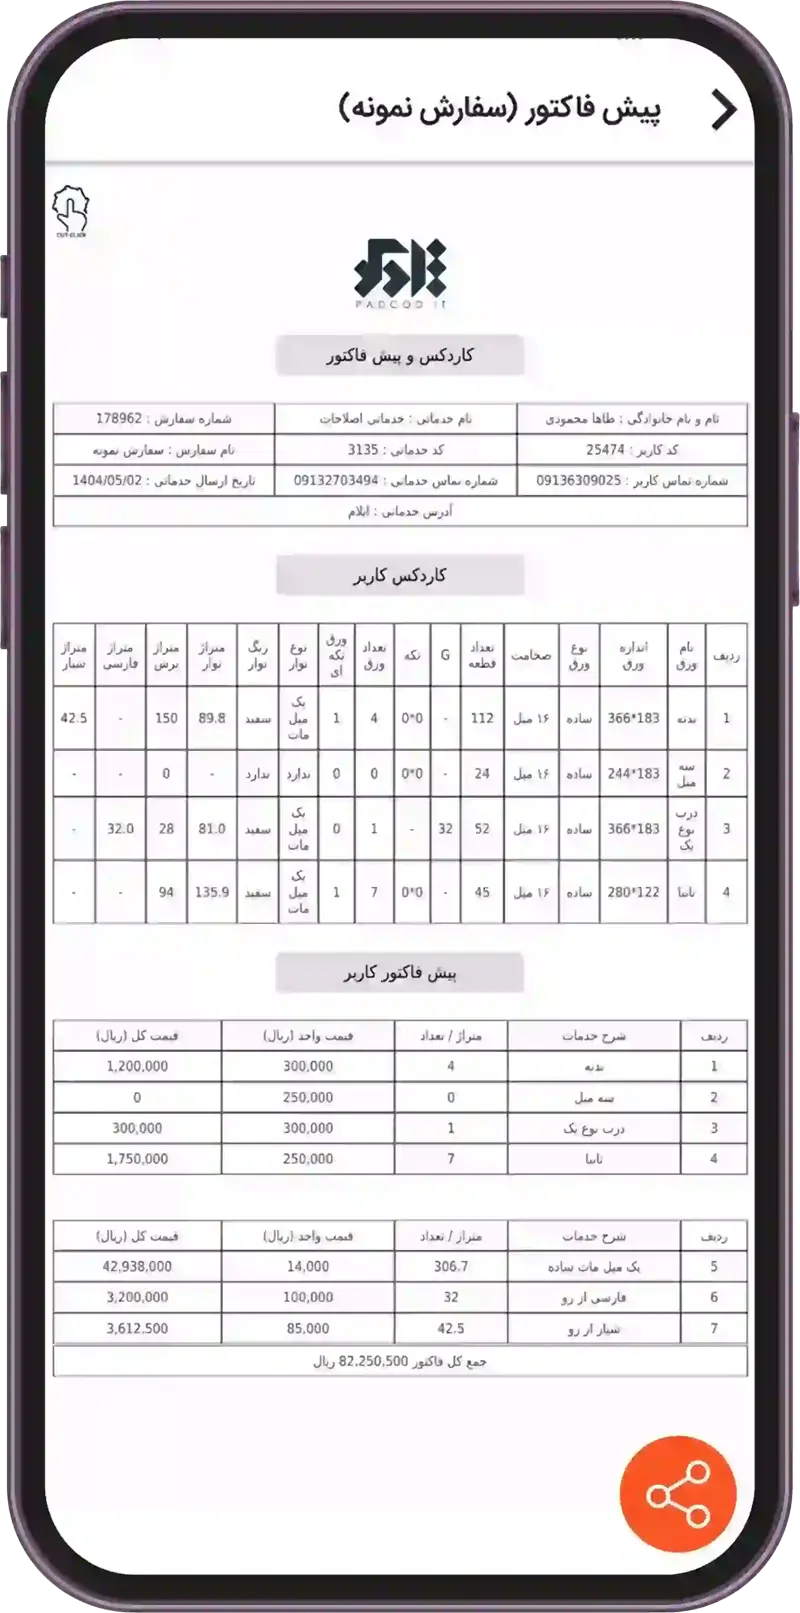 پیش فاکتور (سفارش نمونه)
CUT CLICK
PADCOD IT
کاردکس و پیش فاکتور
نام و نام خانوادگی : طاها محمودی	نام خدماتی : خدماتی اصلاحات	شماره سفارش : 178962
کد کاربر : 25474	کد خدماتی : 3135	نام سفارش : سفارش نمونه
شماره تماس کاربر : 09136309025	شماره تماس خدماتی : 09132703494	تاریخ ارسال خدماتی : 1404/05/02
آدرس خدماتی : ایلام
کاردکس کاربر
ردیف	نام ورق	اندازه ورق	نوع ورق	ضخامت	تعداد قطعه	G	تکه	تعداد ورق	ورق تکه ای	نوع نوار	رنگ نوار	متراژ نوار	متراژ برش	متراژ فارسی	متراژ شیار
1	بدنه	366*183	ساده	۱۶ میل	112	-	0*0	4	1	یک میل مات	سفید	89.8	150	-	42.5
2	سه میل	244*183	ساده	۱۶ میل	24	-	0*0	0	0	ندارد	ندارد	-	0	-	-
3	درب نوع یک	366*183	ساده	۱۶ میل	52	32	-	1	0	یک میل مات	سفید	81.0	28	32.0	-
4	نانیا	280*122	ساده	۱۶ میل	45	-	0*0	7	1	یک میل مات	سفید	135.9	94	-	-
پیش فاکتور کاربر
ردیف	شرح خدمات	متراژ / تعداد	قیمت واحد (ریال)	قیمت کل (ریال)
1	بدنه	4	300,000	1,200,000
2	سه میل	0	250,000	0
3	درب نوع یک	1	300,000	300,000
4	نانیا	7	250,000	1,750,000
ردیف	شرح خدمات	متراژ / تعداد	قیمت واحد (ریال)	قیمت کل (ریال)
5	یک میل مات ساده	306.7	14,000	42,938,000
6	فارسی از رو	32	100,000	3,200,000
7	شیار از رو	42.5	85,000	3,612,500
جمع کل فاکتور 82,250,500 ریال